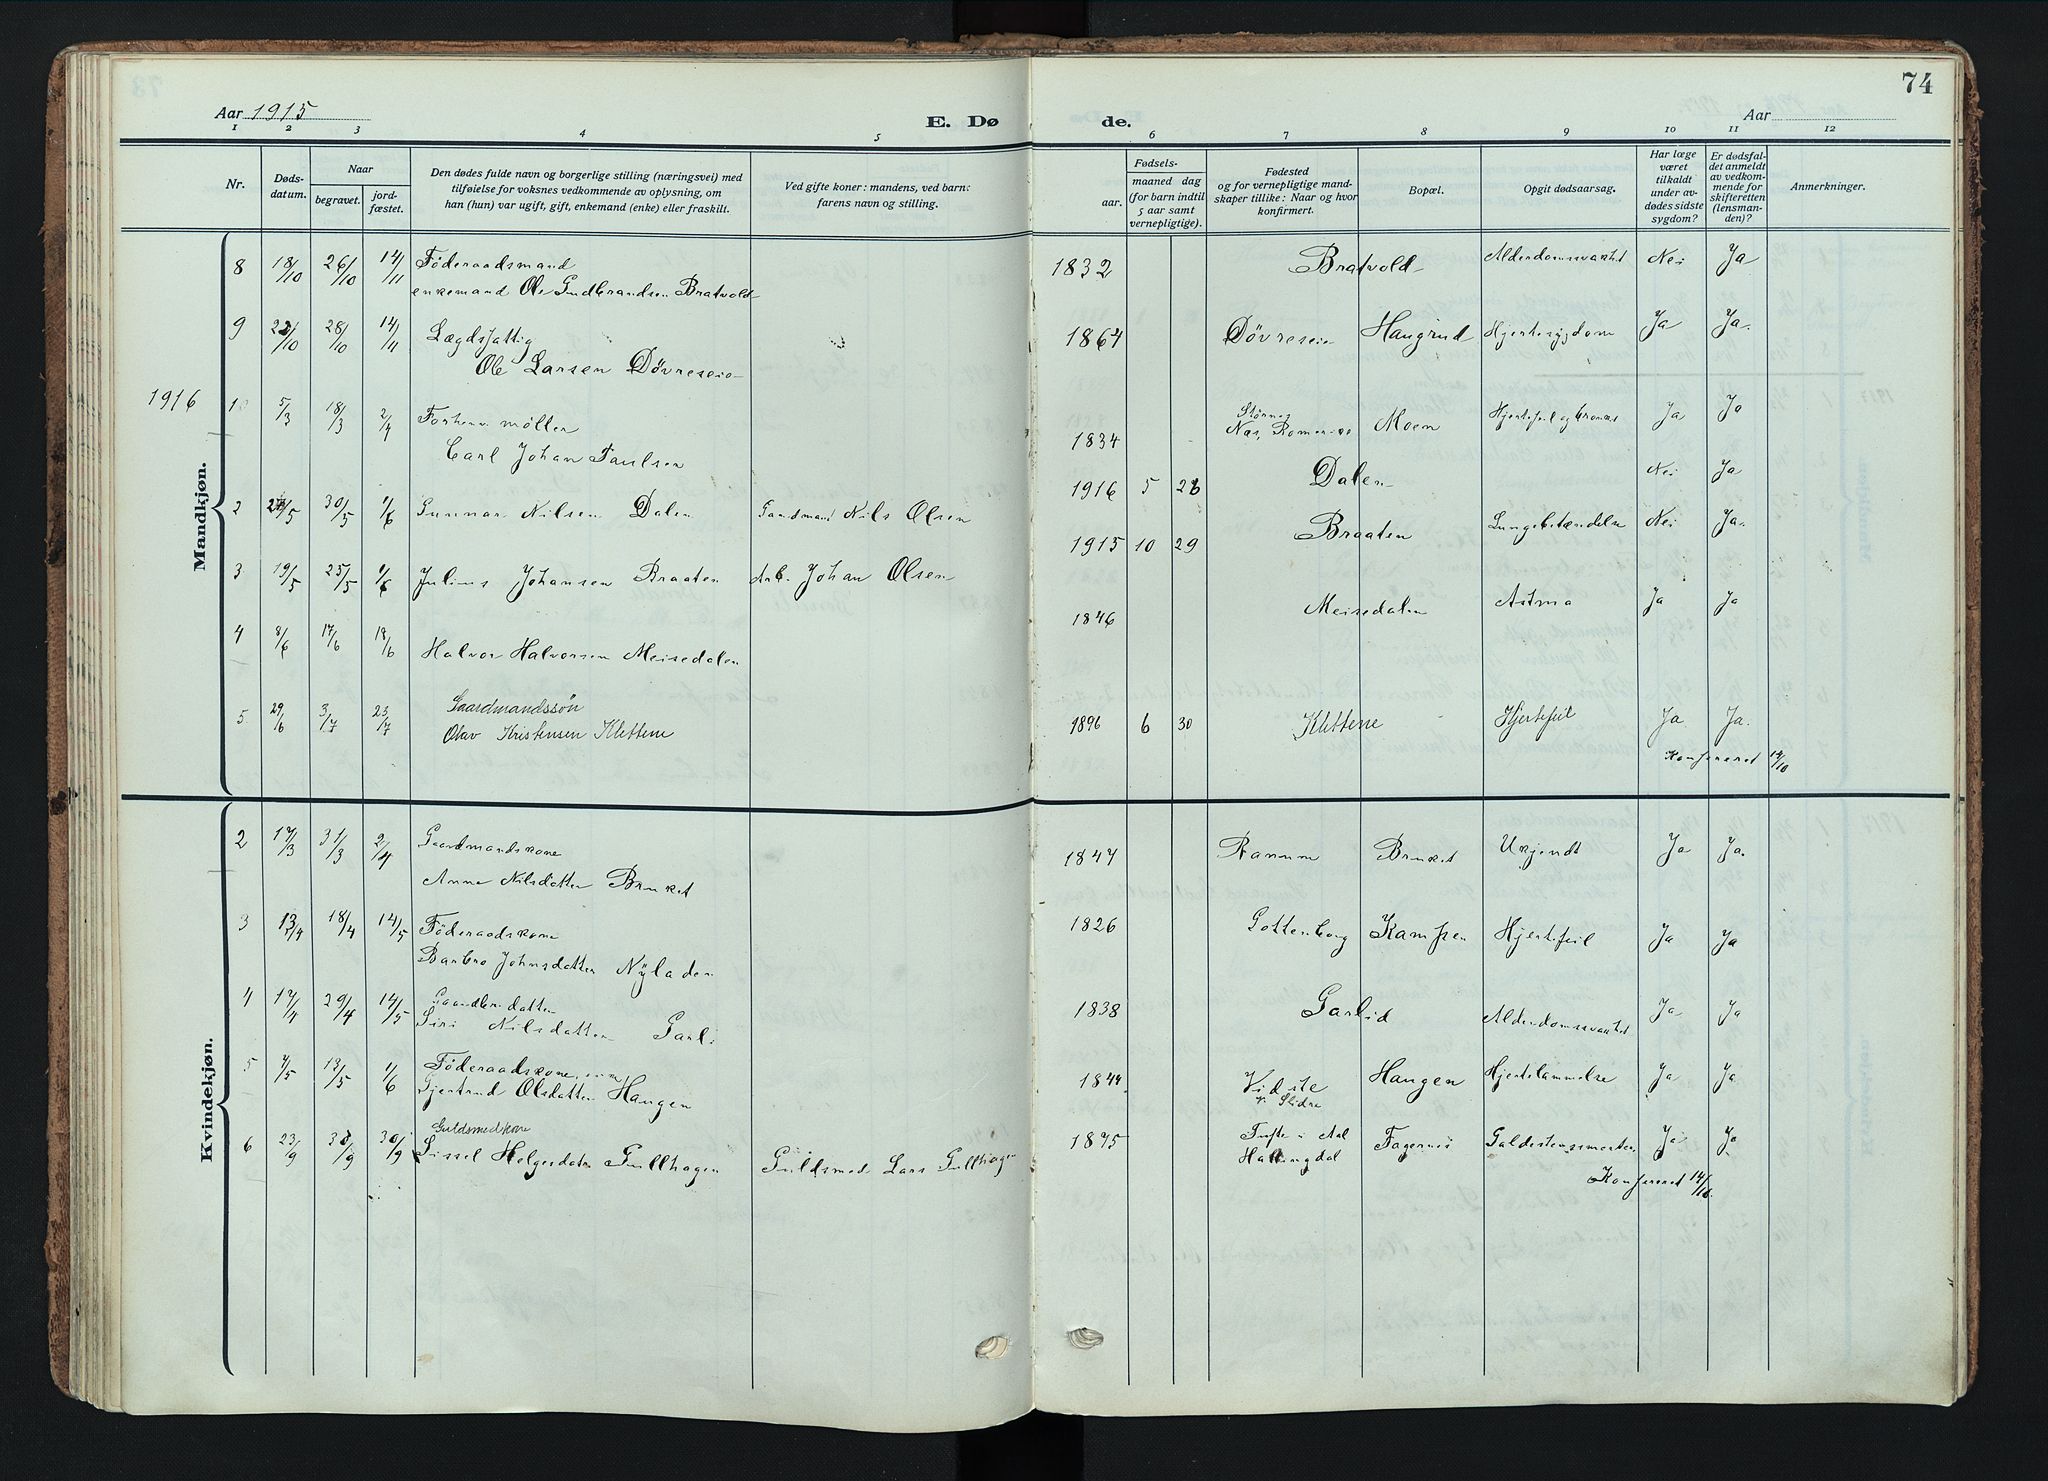 74
Aar 1915
E. Dø
de.
Aar
1 2 3 4 5 6 7 8 9 10 11 12
Nr.
Døds-
datum.
Naar
begravet.
jord-
fæstet.
Den dødes fulde navn og borgerlige stilling (næringsvei) med
tilføielse for voksnes vedkommende av oplysning, om
han (hun) var ugift, gift, enkemand (enke) eller fraskilt.
Ved gifte koner: mandens, ved barn:
farens navn og stilling.
Fødsels-
aar.
maaned dag
(for barn indtil
5 aar samt
vernepligtige).
Fødested
og for vernepligtige mand-
skaper tillike: Naar og hvor
konfirmert.
Bopæl.
Opgit dødsaarsag.
Har læge
været
tilkaldt
under av-
dødes sidste
sygdom?
Er dødsfal-
det anmeldt
av vedkom-
mende for
skifteretten
(lensman-
den)?
Anmerkninger.
Mandkjøn.
8 18/10 26/10 14/11 Föderaadsmand
enkemand Ole Gudbrandsen Bratvold
1832 Bratvold Alderdomssvakhet Nei Ja
9 22/10 28/10 14/11 Lægdsfattig
Ole Larsen Dövreseie
1864 Dövreseie Haugrud Hjertesygdom Ja Ja.
1916
1 5/3 18/3 2/4 Forhenv. möller
Carl Johan Paulsen
1834 Næs, Romerike Moen Hjertefeil og bronkit Ja Ja
2 30/5 1/6 Gunnar Nilsen Dalen Gaardmand Nils Olsen
1916 5 26 Dalen Nei Ja
3 19/5 25/5 1/6 Julius Johansen Braaten Arb. Johan Olsen
1915 10 29 Braaten Lungebetændelse Nei Ja.
4 8/6 17/6 18/6 Halvor Halvorsen Meisedalen
1846 Meisedalen Astma Ja Ja
5 29/6 3/7 23/7 Gaardmandssön
Olav Kristensen Klettene
1896 6 30 Klettene Hjertefeil Ja Ja.
Konfereret 14/10
Kvindekjøn.
2 17/3 31/3 2/4 Gaardmandskone
Anne Nilsdatter Bruket
1847 Ranum Bruket Ukjendt Ja Ja.
3 13/4 18/4 14/5 Föderaadskone
Barbro Johnsdatter Nyladen
1826 Gottenborg Kampen Hjertefeil Ja Ja
4 17/4 29/4 14/5 Gaardbr. datter
Siri Nilsdatter Garli
1838 Garlid Alderdomssvakhet Ja Ja
5 7/5 13/5 1/6 Föderaadskone, enke
Gjertrud Olsdatter Haugen
1844 Vidste
v. Slidre Haugen Hjertelammelse Ja Ja
6 23/9 30/9 30/9 Guldsmedkone
Sissel Helgesdatter Gullhagen Guldsmed Lars Gullhagen
1875 Tufte i Aal
Hallingdal Fagernes Galdestenssmerter Ja Ja
Konfereret 14/10.